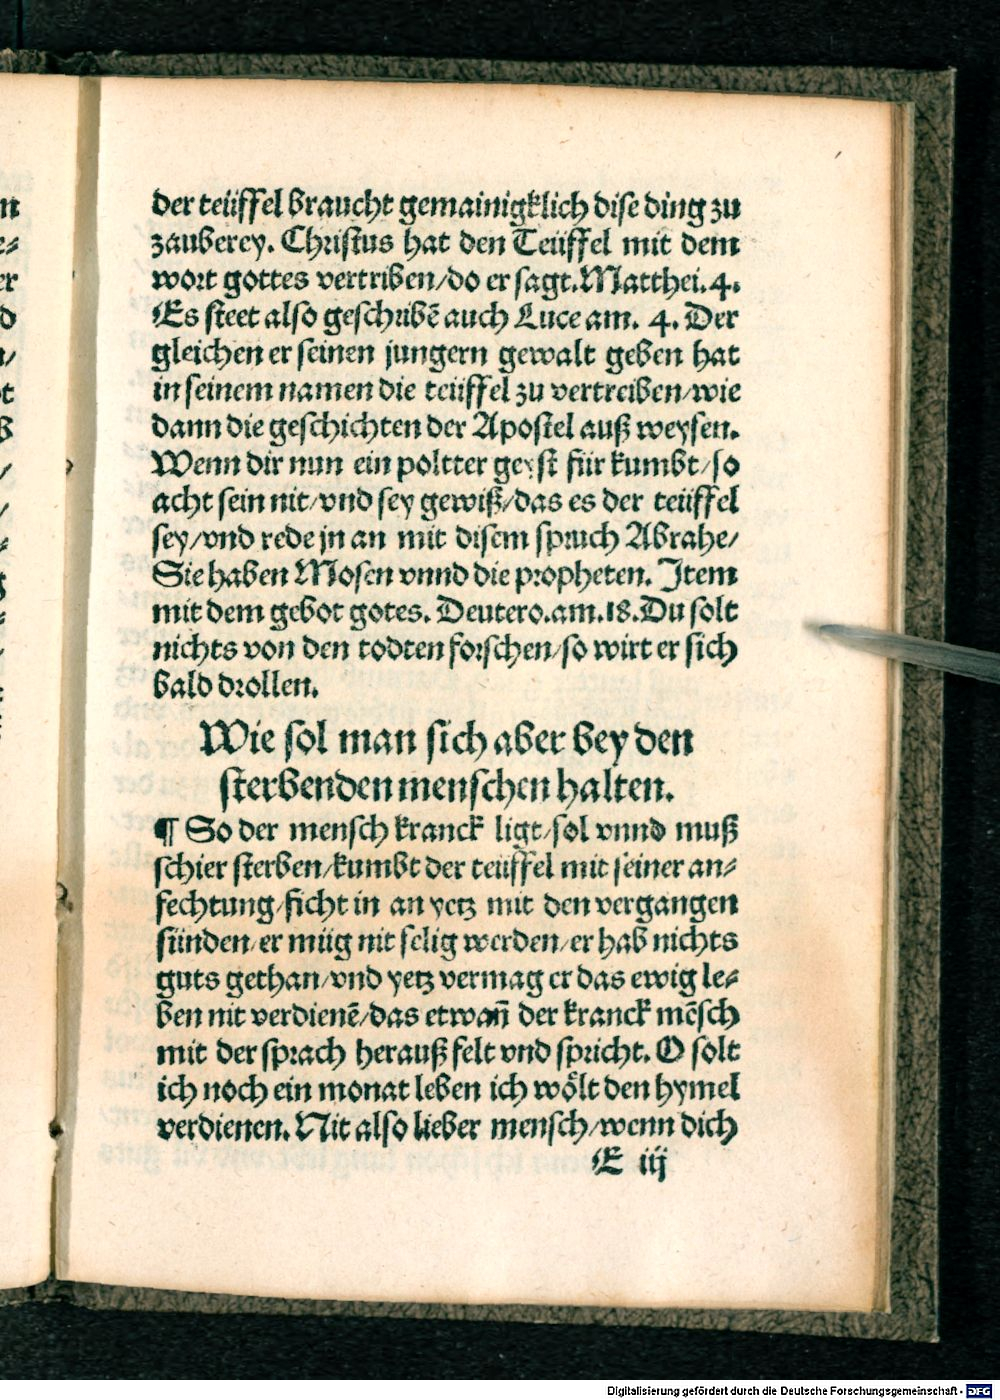 der teüffel braucht gemainigklich dise ding zu
zauberey. Christus hat den Teüffel mit dem
wort gottes vertriben/do er sagt. Matthei. 4.
Es steet also geschribē auch Luce am. 4. Der
gleichen er seinen jungern gewalt geben hat
in seinem namen die teüffel zu vertreiben/wie
dann die geschichten der Apostel auß weysen.
Wenn dir nun ein poltter geyst für kumbt/so
acht sein nit/vnd sey gewiß/das es der teüffel
sey/vnd rede jn an mit disem spruch Abrahe/
Sie haben Mosen vnnd die propheten. Item
mit dem gebot gotes. Deutero. am. 18. Du solt
nichts von den todten forschen/so wirt er sich
bald drollen.
Wie sol man sich aber bey den
sterbenden menschen halten.
¶ So der mensch kranck ligt/sol vnnd muß
schier sterben/kumbt der teüffel mit seiner an⸗
fechtung/ficht in an yetz mit den vergangen
sünden/er müg nit selig werden/er hab nichts
guts gethan/vnd yetz vermag er das ewig le⸗
ben nit verdienē/das etwañ der kranck mēsch
mit der sprach herauß felt vnd spricht. O solt
ich noch ein monat leben ich wölt den hymel
verdienen. Nit also lieber mensch/wenn dich
E iij
Digitalisierung gefördert durch die Deutsche Forschungsgemeinschaft - DFG